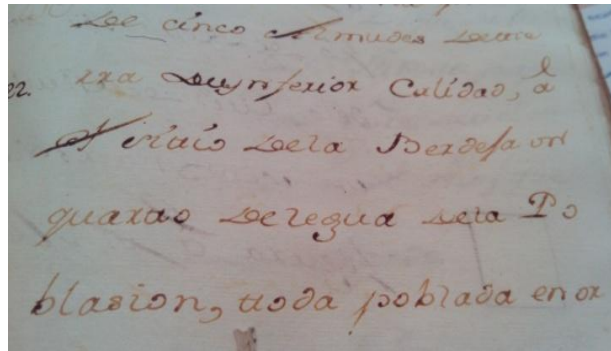 De cinco Almudes Detie
rra Deynferior Calidad, â
el sitio Dela Berdesa un
quarto De legua Dela Po
blasion, ttoda poblada en or